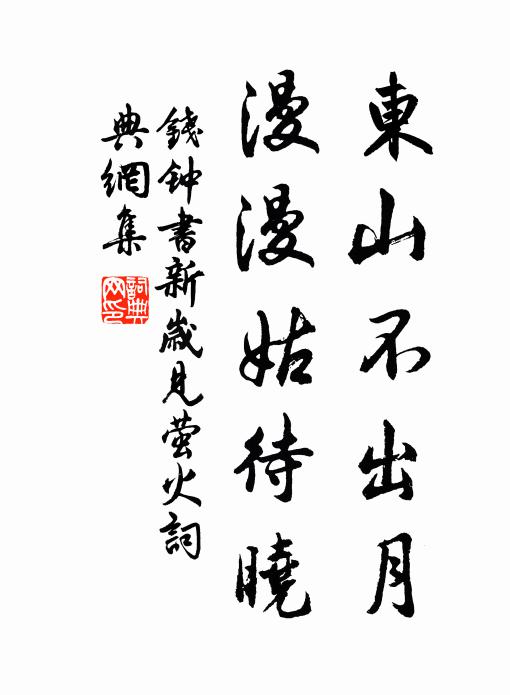 東山不出月
漫漫姑待曉
錢钟書新歲見萤火詞
典網集
詞典
网印